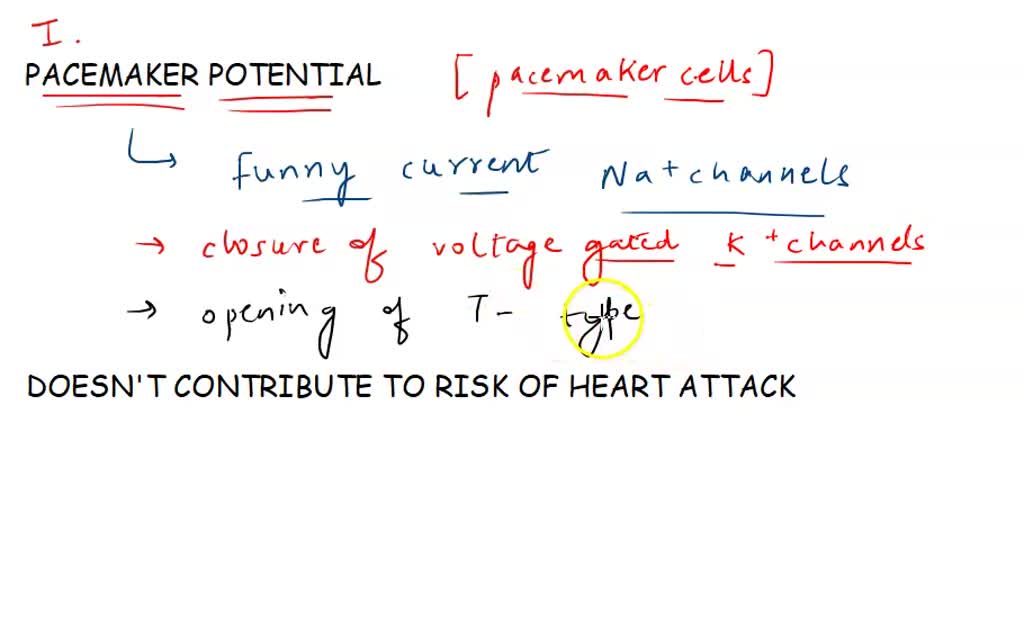 I.
PACEMAKER POTENTIAL [pacemaker cells]
↳ funny current Na+ channels
→ closure of voltage gated K+ channels
→ opening of T- type
DOESN'T CONTRIBUTE TO RISK OF HEART ATTACK